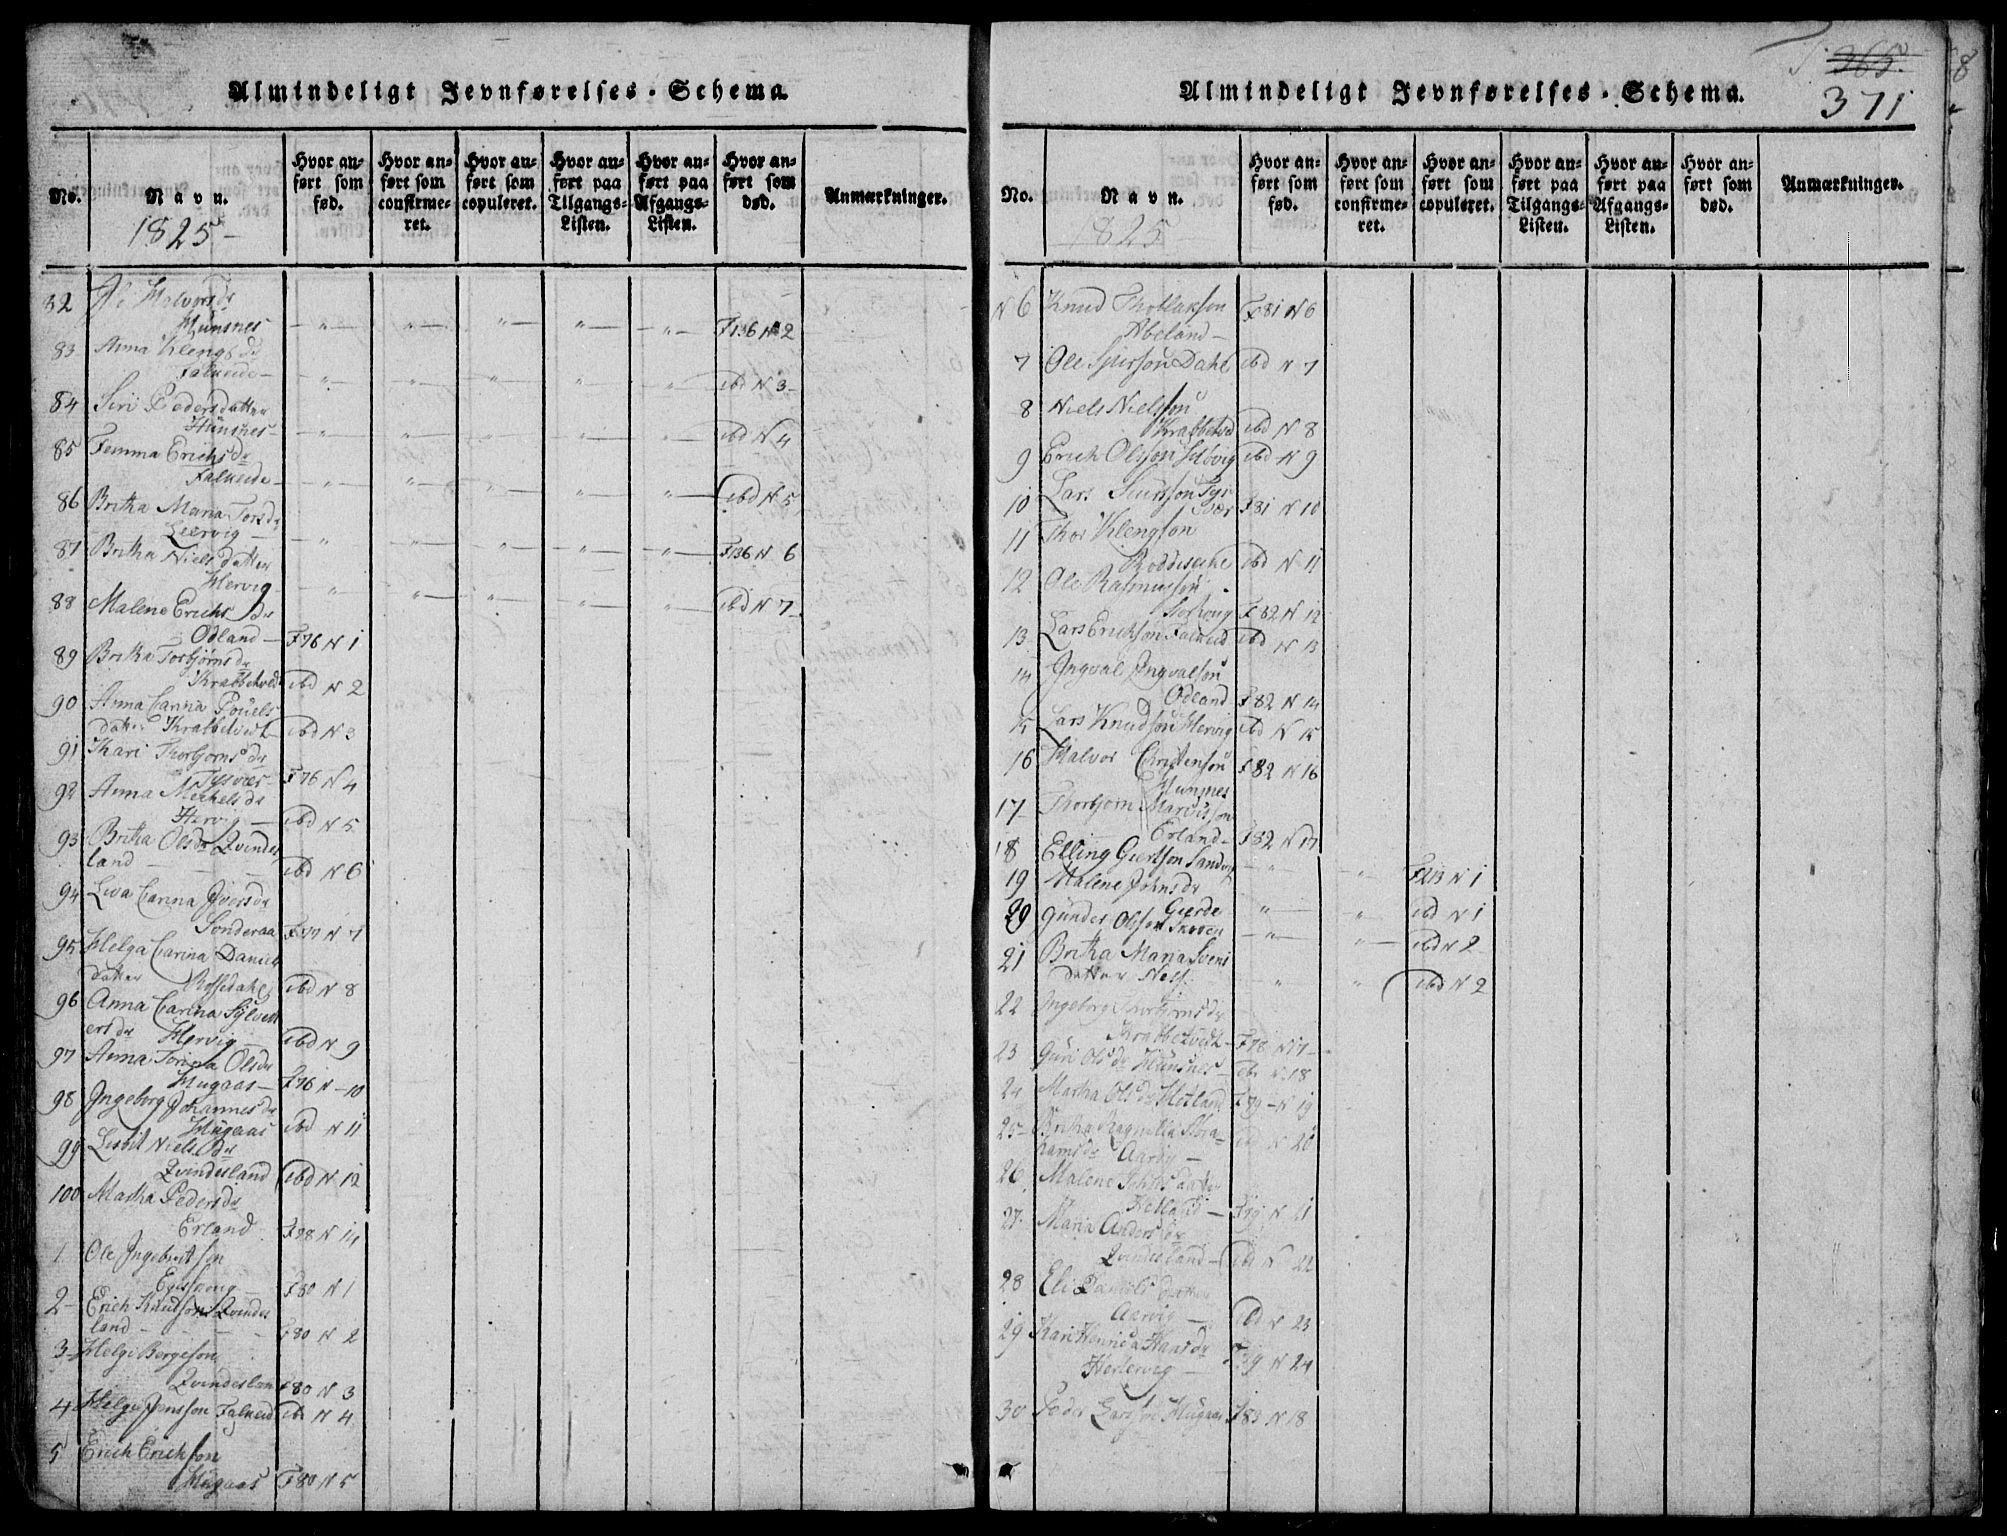 Almindeligt Jevnførelses-Schema.
No.
Navn.
1825-
Hvor anført som fød.
Hvor anført som confirmeret.
Hvor anført som copuleret.
Hvor anført paa Tilgangs-Listen.
Hvor anført paa Afgangs-Listen.
Hvor anført som død.
Anmærkninger.
82 Halvorsdr
Hünsnes — " — " — " — " — " — F136 N 2
83 Anna Klengsdr
Falkeide — " — " — " — " — " — ibd N 3
84 Siri Pedersdatter
Hünsnes — " — " — " — " — " — ibd N 4
85 Femma Erichsdr
Falkeide — " — " — " — " — " — ibd N 5
86 Britha Maria Torsdr
Leervig — " — " — " — " — " — F136 N 6
87 Britha Nielsdatter
Hervig — " — " — " — " — " — ibd N 7
88 Malene Erichsdr
Odland — F76 N 1
89 Britha Torbjørnsdr
Krabbetvedt ibd N 2
90 Anna Carina Pouels
datter Krabbetvedt ibd N 3
91 Kari Thorbjørnsdr
Tysvær — F76 N 4
92 Anna Michelsdr
Hervig — ibd N 5
93 Britha Olsdr Qvindes
land — ibd N 6
94 Liva Carina Iversdr
Sønderaa F77 N 7
95 Helga Carina Daniels
datter Rossedahl ibd N 8
96 Anna Carina Sylvest
ersdr Hervig — ibd N 9
97 Anna Torina Olsdr
Hugaas — F76 N 10
98 Ingeborg Johannesdr
Hugaas ibd N 11
99 Lisbit Nielsdr
Qvindesland ibd N 12
100 Martha Pedersdr
Erland F78 N 14
1 Ole Ingebritson
F80 N 1
2 Erich Knudson Qvindes
land — F80 N 2
3 Helge Bergeson
Qvindeslan F80 N 3
4 Helge Jensson Falkeid ibd N 4
5 Erich Erichson
Hugaas F80 N 5
Almindeligt Jevnførelses-Schema.
365.
371
No.
Navn.
1825
Hvor anført som fød.
Hvor anført som confirmeret.
Hvor anført som copuleret.
Hvor anført paa Tilgangs-Listen.
Hvor anført paa Afgangs-Listen.
Hvor anført som død.
Anmærkninger.
N 6 Knud Thorlakson F81 N 6
Abeland —
7 Ole Dahl ibd N 7
8 Niels Nielsson
Krabbetved ibd N 8
9 Erich Olsson ibd N 9
10 Lars Siursson Tys
vær F81 N 10
11 Thor Klengson
ibd N 11
12 Ole Rasmusson
F82 N 12
13 Lars Erikson Falkeid ibd N 13
14 Ingval Ingvalson
Odland F82 N 14
15 Lars Knudson Hervig ibd N 15
16 Halvor Christenson F82 N 16
Hunsnes
17 Thorbjørn Marcusson
Erland — F82 N 17
18 Elling Giertson Sandvig — " — " — F213 N 1
19 Malene Johnsdr
Gierde " " ibd N 1
20 Gunder Olsson — " — " — ibd N 2
21 Britha Maria Svens
datter Ness — " " ibd N 2
22 Ingeborg Thorbjørnsdr
Krabbetvedt — F78 N 17
23 Guri Olsdr Hünsnes — ibd N 18
24 Martha Olsdr F79 N 19
25 Britha Ragnilla Abra-
hamsdr Aarvig — ibd N 20
26 Malene
Hetland — F79 N 21
27 Maria Andersdr
Qvindesland — ibd N 22
28 Eli Daniels datter
Aarvig — ibd N 23
29 Kari Henrica Hansdr
Hestervig — F79 N 24
30 Peder Larsson Hugaas F82 N 18